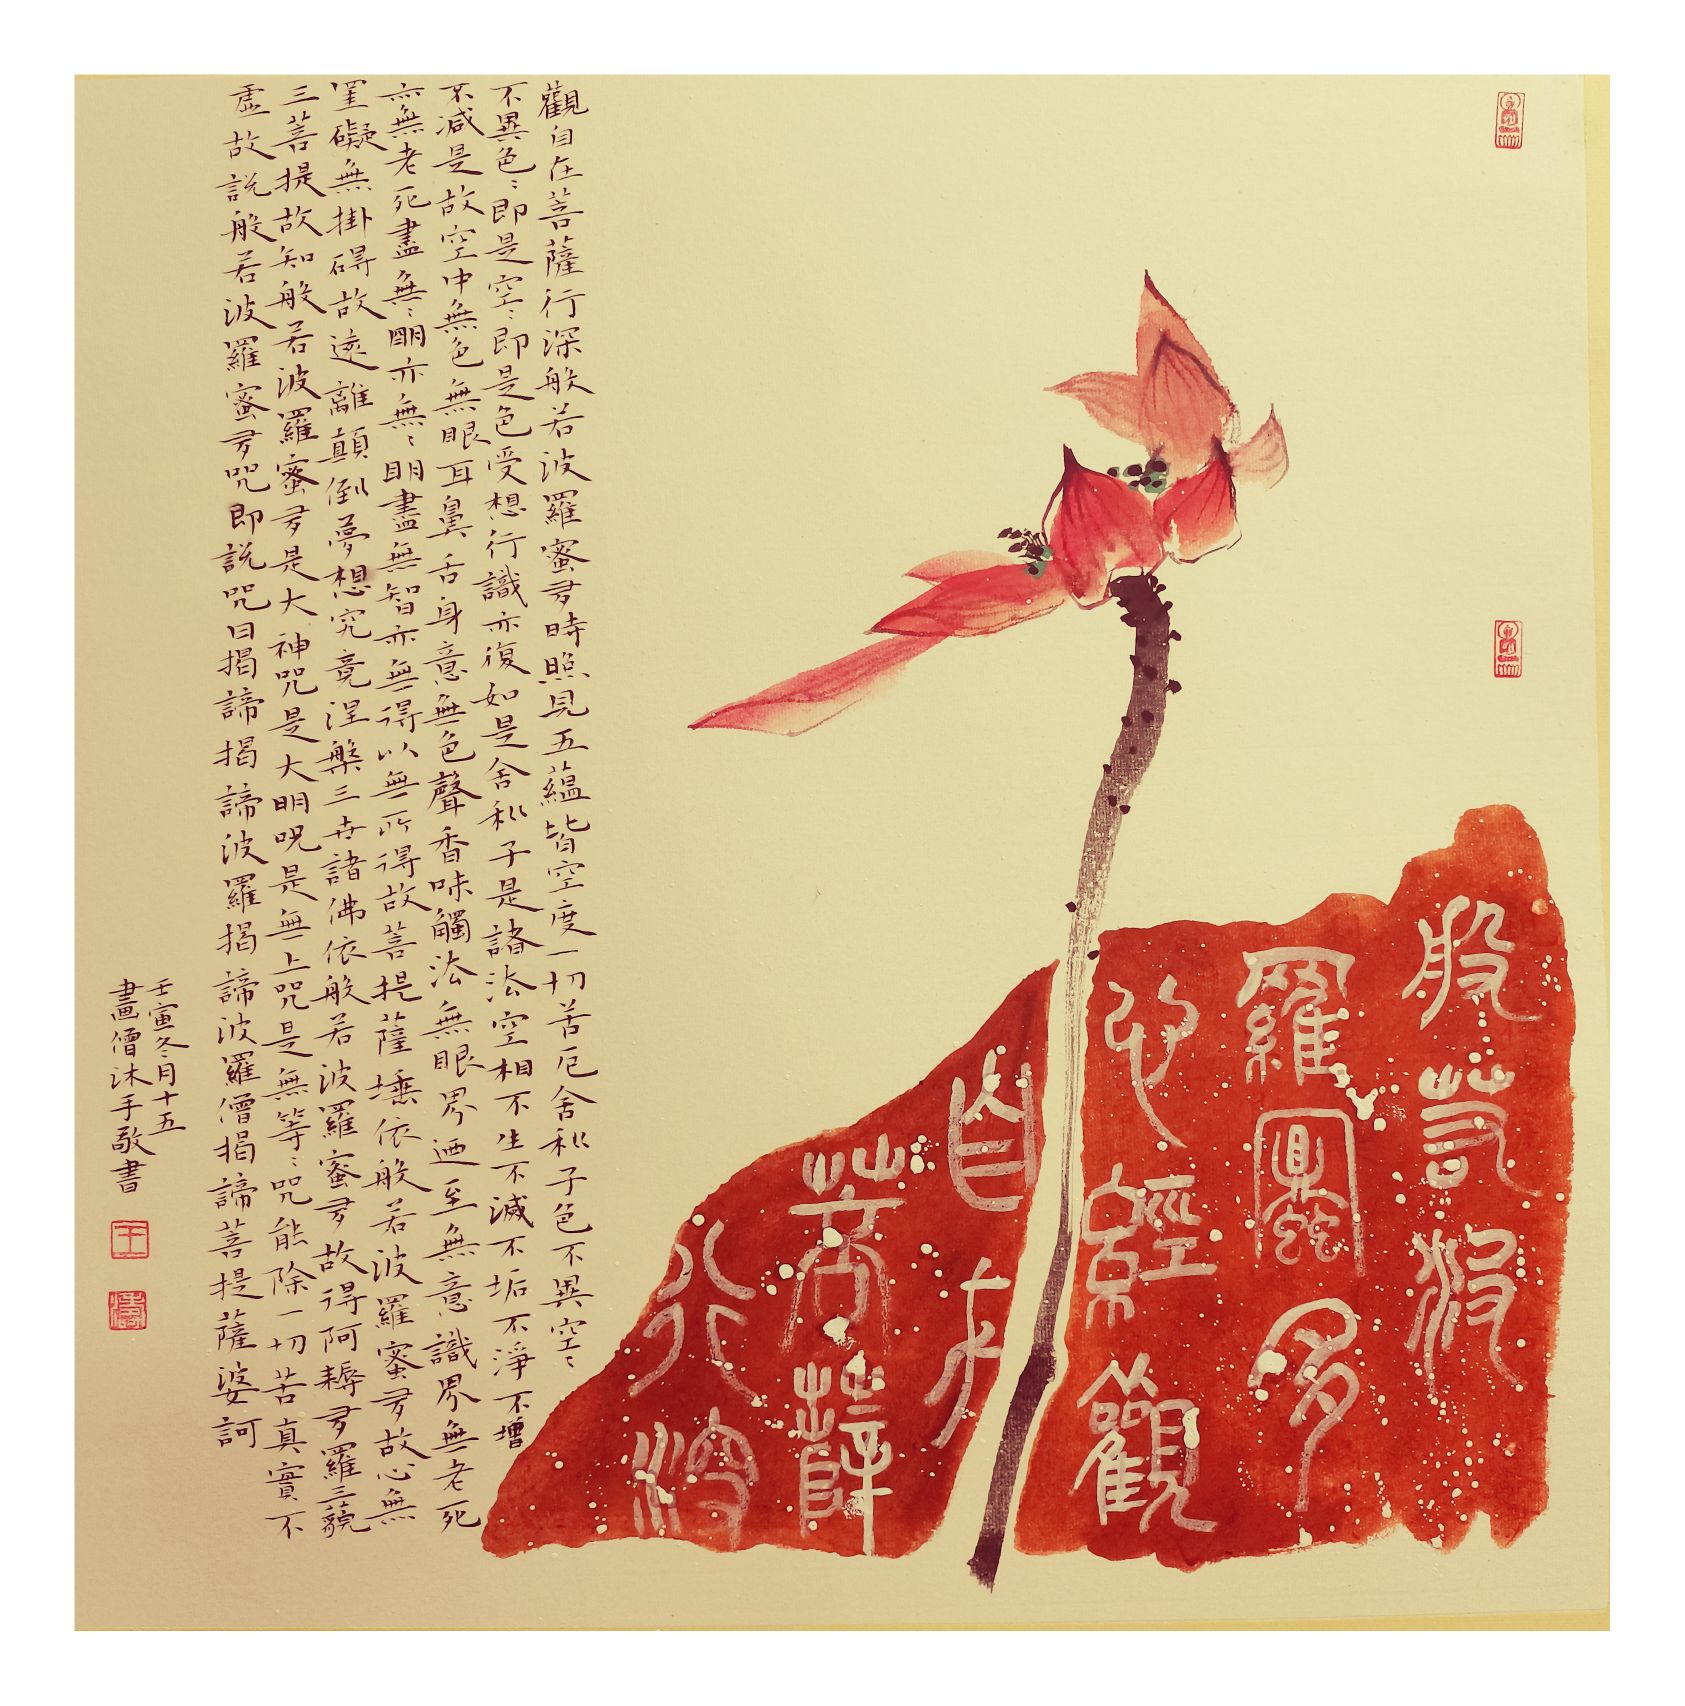 般若波
羅蜜多
心經觀
自在
菩薩
行深
觀自在菩薩行深般若波羅蜜多時照見五蘊皆空度一切苦厄舍利子色不異空〻
不異色〻即是空〻即是色受想行識亦復如是舍利子是諸法空相不生不滅不垢不淨不增
不減是故空中無色無眼耳鼻舌身意無色聲香味觸法無眼界迺至無意識界無老死
亦無老死盡無〻明亦無〻明盡無智亦無得以無所得故菩提薩埵依般若波羅蜜多故心無
罣礙無掛碍故遠離顛倒夢想究竟涅槃三世諸佛依般若波羅蜜多故得阿耨多羅三藐
三菩提故知般若波羅蜜多是大神咒是大明咒是無上咒是無等〻咒能除一切苦真實不
虛故說般若波羅蜜多咒即說咒曰揭諦揭諦波羅揭諦波羅僧揭諦菩提薩婆訶
壬寅冬月十五
畫僧沐手敬書
王